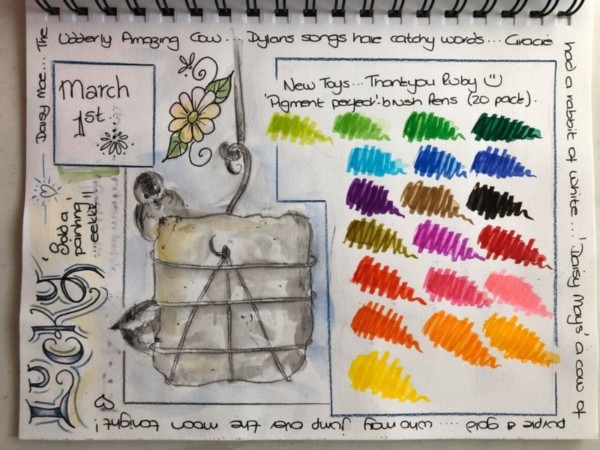 Daisy Mae... The
Udderly Amazing Cow... Dylans songs have catchy words... Gracie
had a rabbit of white... 'Daisy Mays' a cow of
purple & gold .... who may jump over the moon tonight!
March
1st
New Toys... Thankyou Ruby
'Pigment perfect' brush Pens (20 pack).
'Sold a
painting'
Lucky